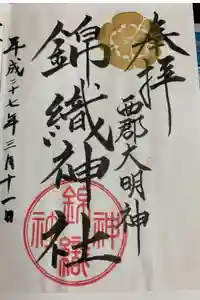 奉拝
西郡大明神
錦織神社
錦織
神社
平成二十七年三月十一日